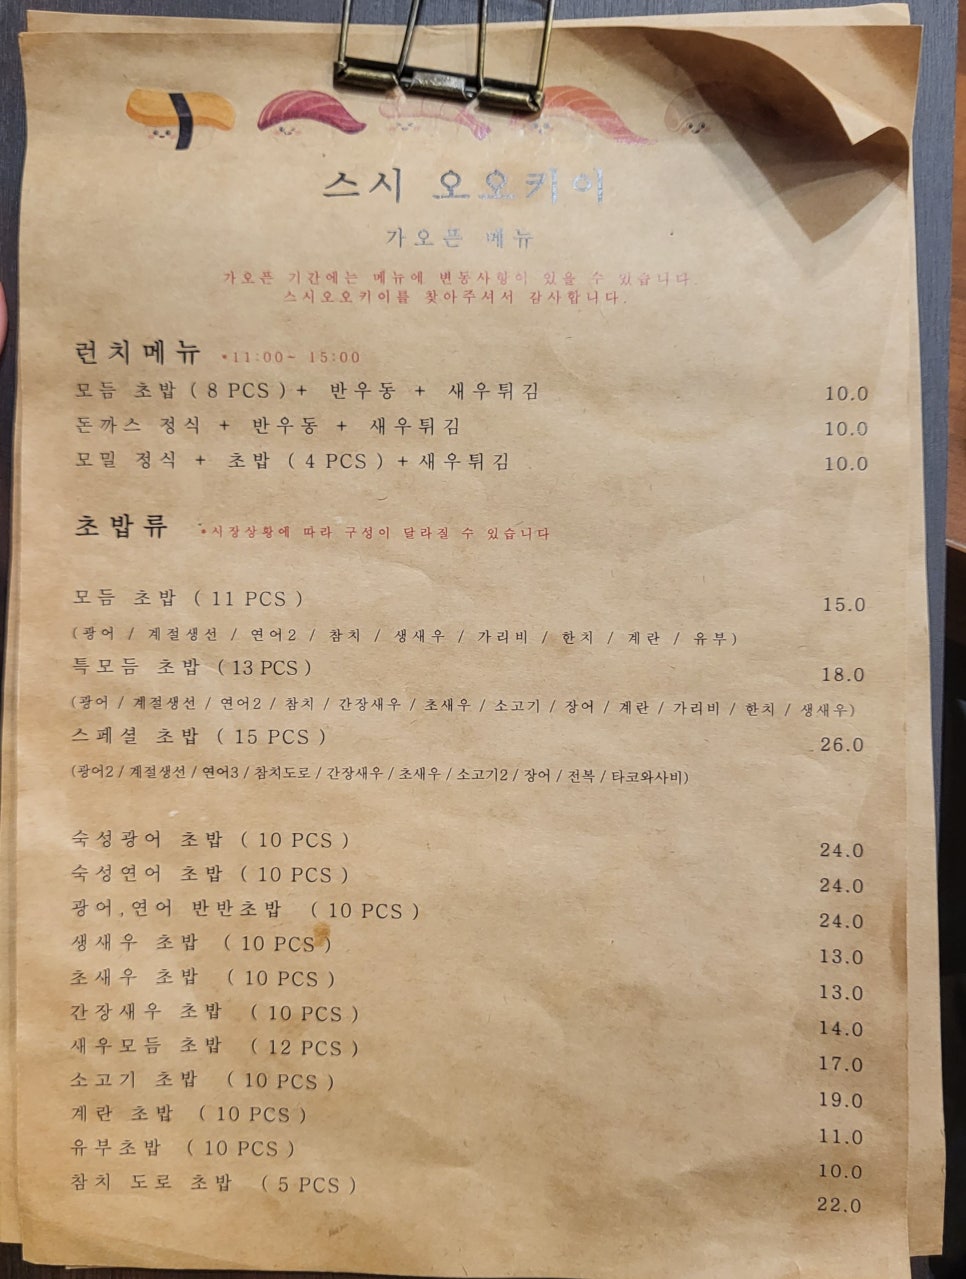 스시 오오키이
가오픈 메뉴
가오픈 기간에는 메뉴에 변동사항이 있을 수 있습니다.
스시오오키이를 찾아주셔서 감사합니다.
런치메뉴 *11:00~ 15:00
모듬 초밥 ( 8 PCS ) + 반우동 + 새우튀김 10.0
돈까스 정식 + 반우동 + 새우튀김 10.0
모밀 정식 + 초밥 ( 4 PCS ) + 새우튀김 10.0
초밥류 *시장상황에 따라 구성이 달라질 수 있습니다
모듬 초밥 ( 11 PCS ) 15.0
(광어 / 계절생선 / 연어2 / 참치 / 생새우 / 가리비 / 한치 / 계란 / 유부)
특모듬 초밥 ( 13 PCS ) 18.0
(광어 / 계절생선 / 연어2 / 참치 / 간장새우 / 초새우 / 소고기 / 장어 / 계란 / 가리비 / 한치 / 생새우)
스페셜 초밥 ( 15 PCS ) 26.0
(광어2 / 계절생선 / 연어3 / 참치도로 / 간장새우 / 초새우 / 소고기2 / 장어 / 전복 / 타코와사비)
숙성광어 초밥 ( 10 PCS ) 24.0
숙성연어 초밥 ( 10 PCS ) 24.0
광어,연어 반반초밥 ( 10 PCS ) 24.0
생새우 초밥 ( 10 PCS ) 13.0
초새우 초밥 ( 10 PCS ) 13.0
간장새우 초밥 ( 10 PCS ) 14.0
새우모듬 초밥 ( 12 PCS ) 17.0
소고기 초밥 ( 10 PCS ) 19.0
계란 초밥 ( 10 PCS ) 11.0
유부초밥 ( 10 PCS ) 10.0
참치 도로 초밥 ( 5 PCS ) 22.0